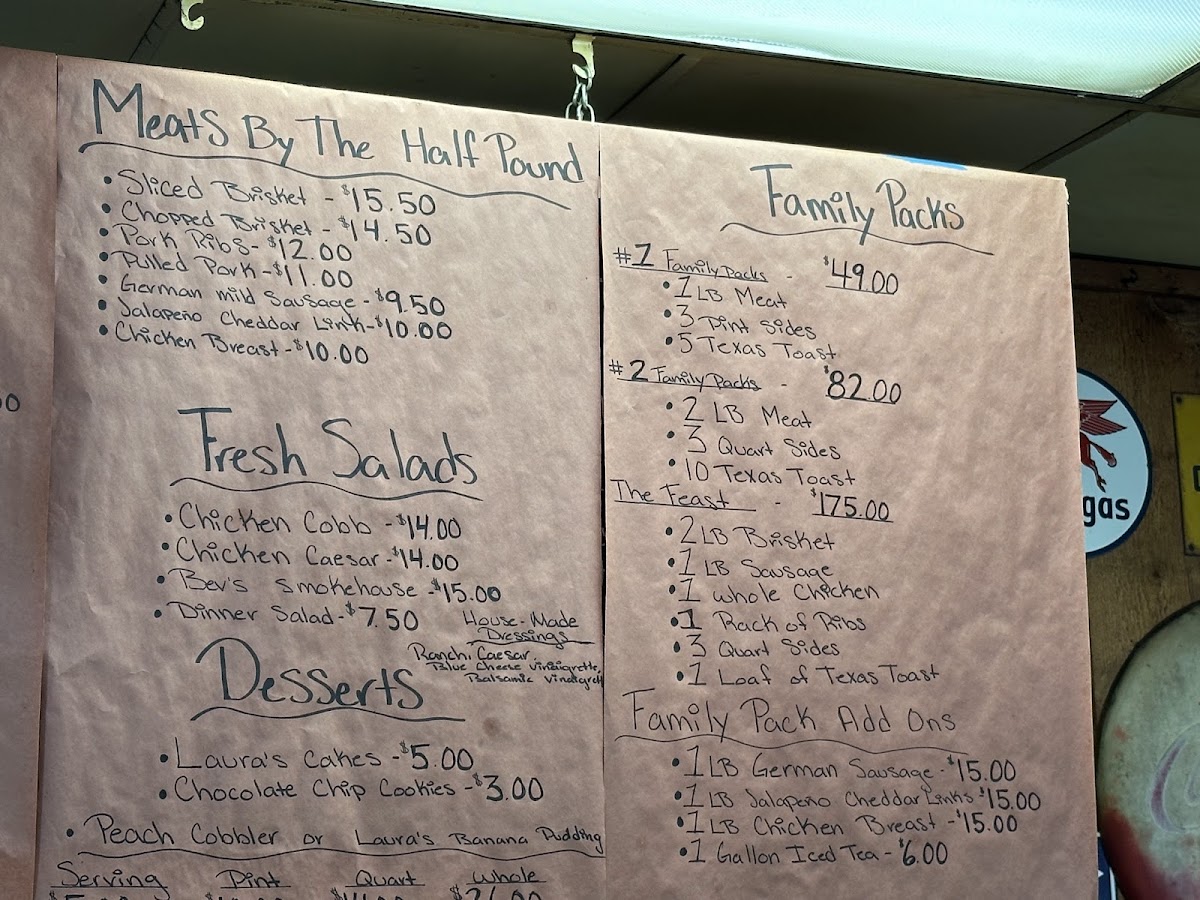 Meats By The Half Pound
• Sliced Brisket - $15.50
• Chopped Brisket - $14.50
• Pork Ribs - $12.00
• Pulled Pork - $11.00
• German mild Sausage - $9.50
• Jalapeño Cheddar Link - $10.00
• Chicken Breast - $10.00
Fresh Salads
• Chicken Cobb - $14.00
• Chicken Caesar - $14.00
• Bev's Smokehouse - $15.00
• Dinner Salad - $7.50
House-Made
Dressings
Ranch, Caesar,
Blue Cheese Vinaigrette,
Balsamic
Desserts
• Laura's Cakes - $5.00
• Chocolate Chip Cookies - $3.00
• Peach Cobbler or Laura's Banana Pudding
Serving Pint Quart Whole
Family Packs
#1 Family Packs - $49.00
• 1 LB Meat
• 3 Pint Sides
• 5 Texas Toast
#2 Family Packs - $82.00
• 2 LB Meat
• 3 Quart Sides
• 10 Texas Toast
The Feast - $175.00
• 2 LB Brisket
• 1 LB Sausage
• 1 Whole Chicken
• 1 Rack of Ribs
• 3 Quart Sides
• 1 Loaf of Texas Toast
Family Pack Add Ons
• 1 LB German Sausage - $15.00
• 1 LB Jalapeño Cheddar Links $15.00
• 1 LB Chicken Breast - $15.00
• 1 Gallon Iced Tea - $6.00
gas